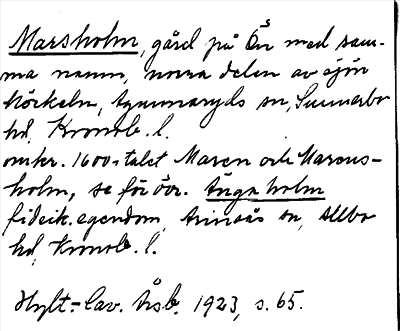 Marsholm, gård på Ön med sam-
ma namn, norra delen av sjön
Möckeln, Agunnaryds sn, Sunnerbo
hd, Kronob. l.
omkr. 1600-talet Maren och Marcus-
holm, se för övr. Ängaholm
fideik. egendom, Aringsås sn, Allbo
hd, Kronob. l.
Hylt.-Cav. Årsb. 1923, s. 65.